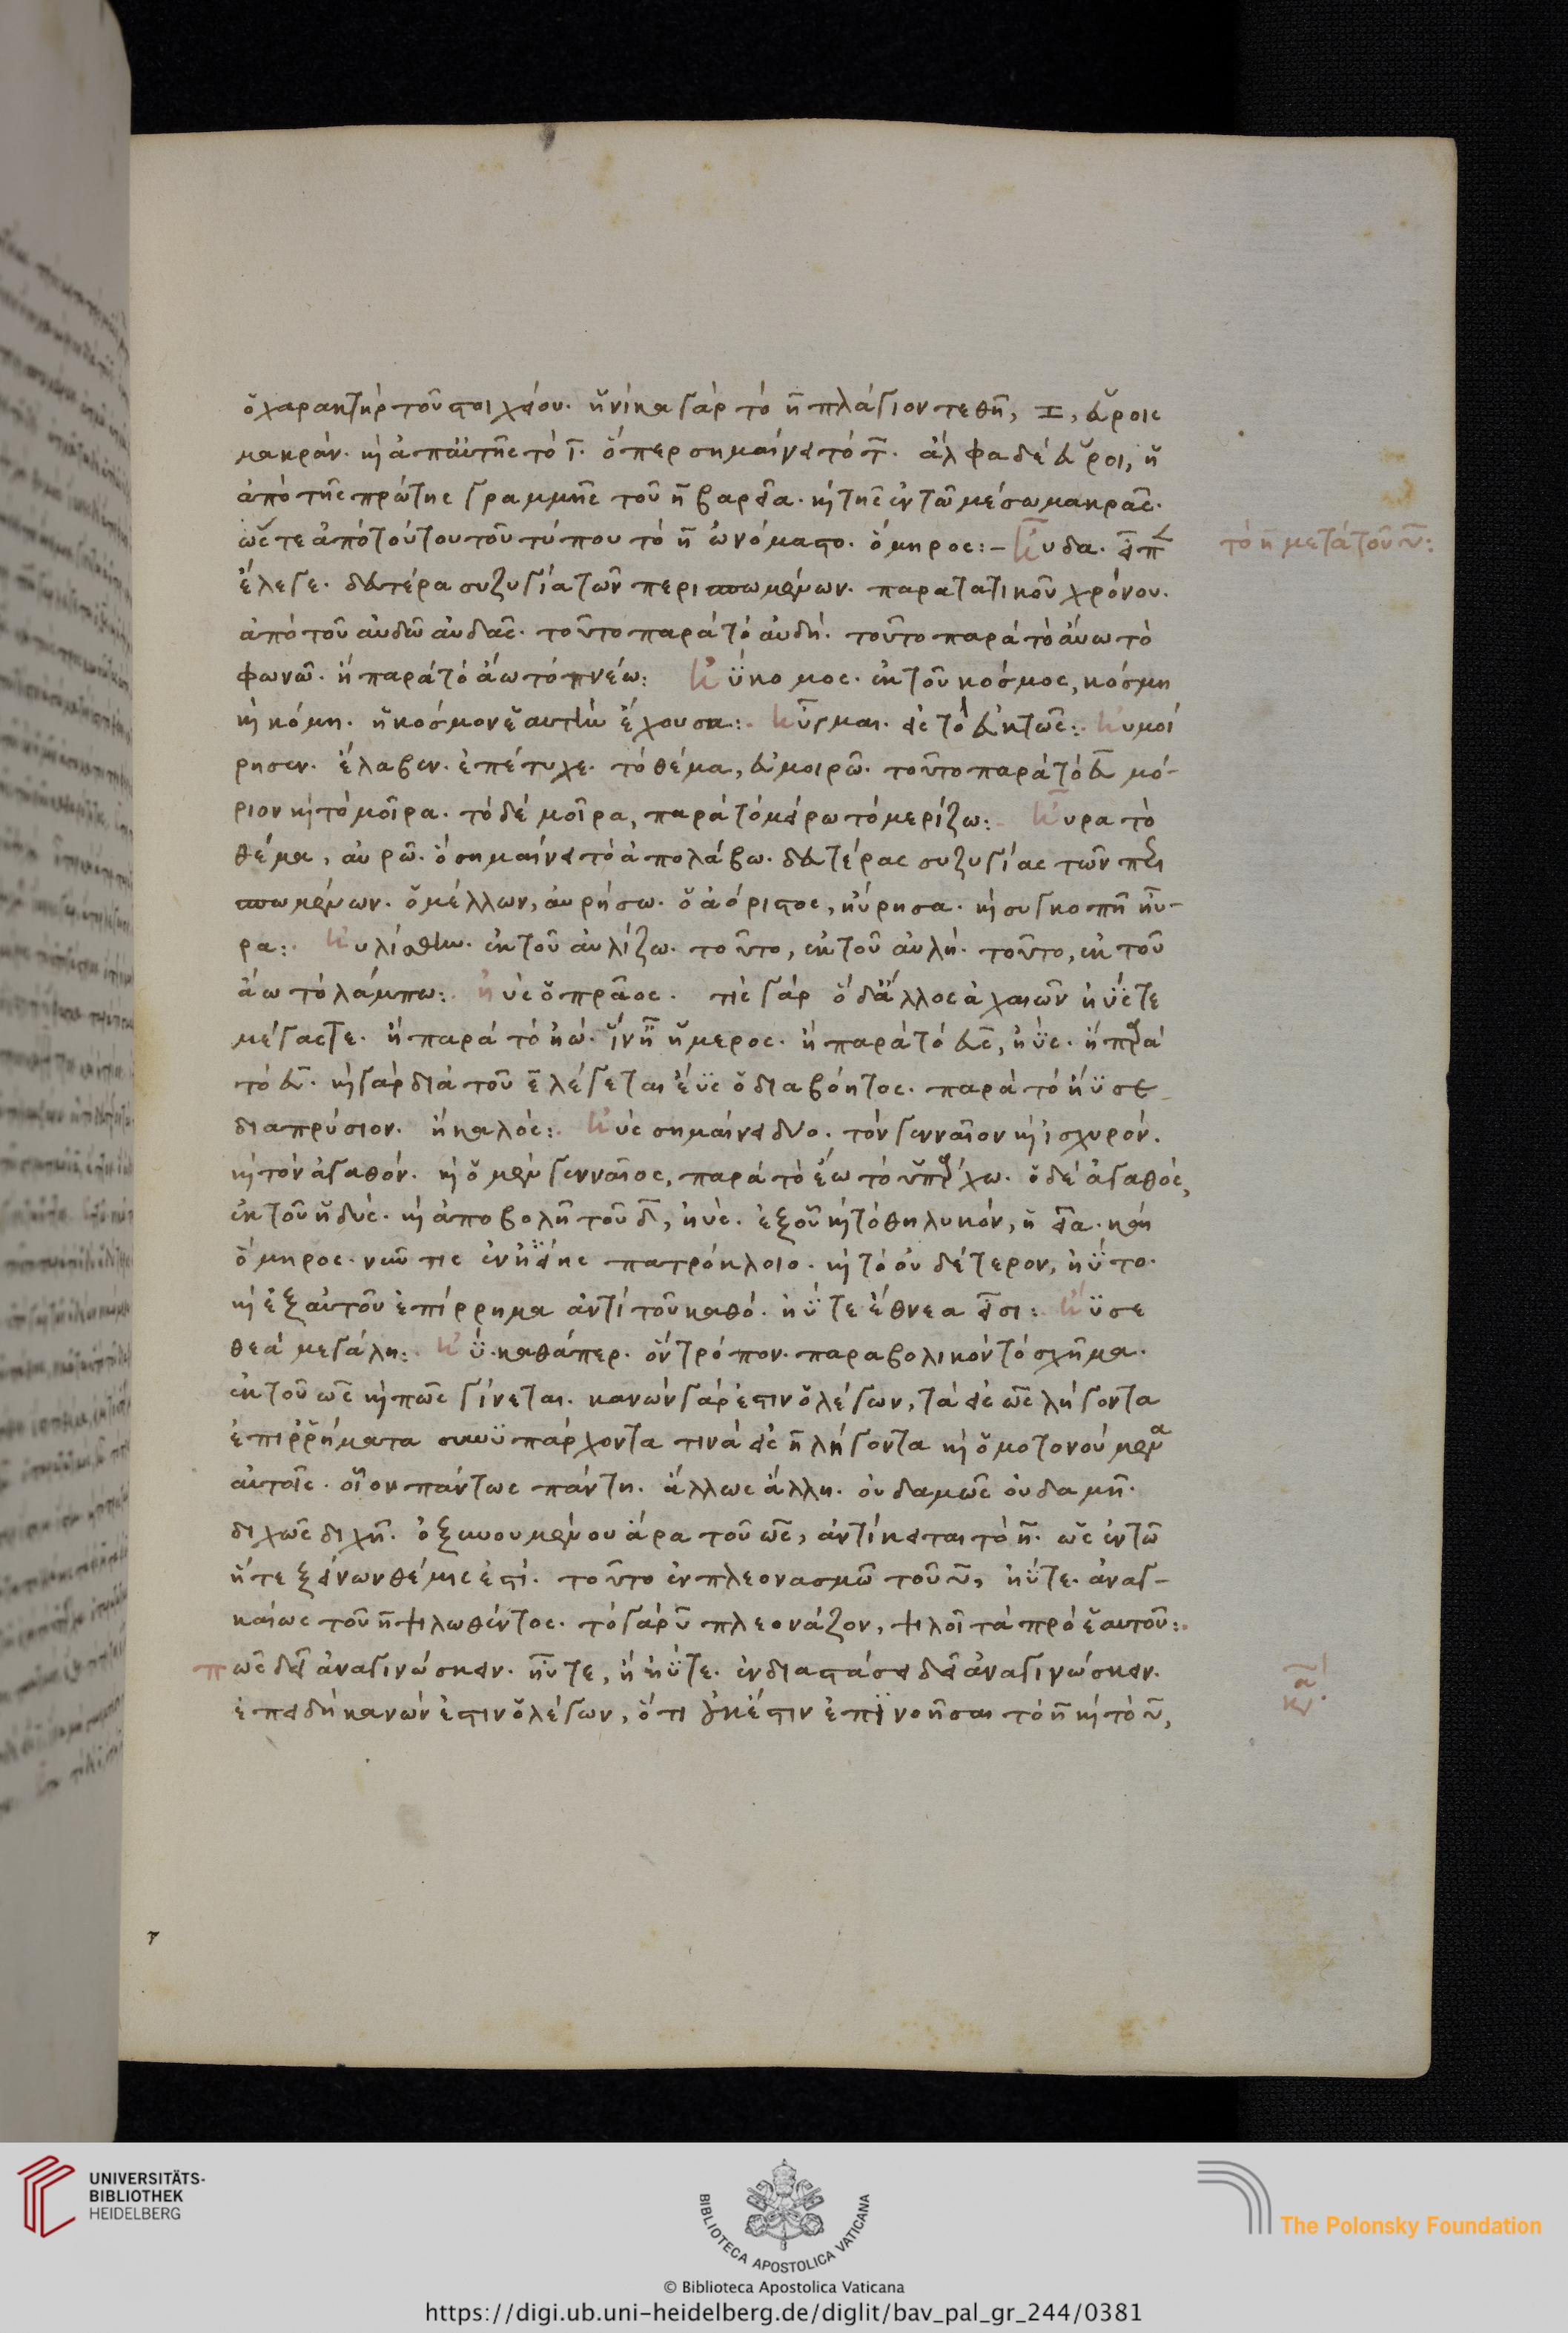 ὁ χαρακτὴρ τοῦ στοιχείου. ἡνίκα γὰρ τὸ η̄ πλάγιον τεθῆ, εὕροις
μακράν. κὶ ἀπ' αὐτῆς τὸ ῑ. ὅπερ σημαίνει τὸ τ̄. ἄλφα δὲ εὕροι, ἢ
ἀπὸ τῆς πρώτης γραμμῆς τοῦ η̄ βαρεῖα. κὶ τῆς ἐν τῶ μέσω μακρᾶς.
ὥστε ἀπὸ τούτου τοῦ τύπου τὸ η̄ ὠνόμαστο. ὅμηρος:– Ηὔδα. εἶπ
τὸ η̄ μετὰ τοῦ ῡ:
ἔλεγε. δευτέρα συζυγία τῶν περισπωμένων. παρατατικοῦ χρόνου.
ἀπὸ τοῦ αὐδῶ αὐδᾶς. τοῦτο παρὰ τὸ αὐδή. τοῦτο παρὰ τὸ αὔω τὸ
φωνῶ. ἢ παρὰ τὸ ἄω τὸ πνέω: Ηΰκομος. ἐκ τοῦ κόσμος, κόσμη
κὶ κόμη. ἡ κόσμον ἑαυτὴν ἔχουσα: Ηὖγμαι. εἰς τὸ εὐκτῶς: Ηὐμοί
ρησεν. ἔλαβεν. ἐπέτυχε. τὸ θέμα, εὐμοιρῶ. τοῦτο παρὰ τὸ εὖ μό-
ριον κὶ τὸ μοῖρα. τὸ δὲ μοῖρα, παρὰ τὸ μείρω τὸ μερίζω: Ηὗρα τὸ
θέμα, αὐρῶ. ὃ σημαίνει τὸ ἀπολάβω. δευτέρας συζυγίας τῶν περι
σπωμένων. ὁ μέλλων, αὐρήσω. ὁ ἀόριστος, ηὔρησα. κὶ συγκοπῆ ηὗ-
ρα: Ηὐλίσθην. ἐκ τοῦ αὐλίζω. τοῦτο, ἐκ τοῦ αὐλή. τοῦτο, ἐκ τοῦ
ἄω τὸ λάμπω: ἠὺς ὁ πρᾶος. τίς γὰρ ὅδ' ἄλλος ἀχαιῶν ἠΰς τε
μέγας τε. ἢ παρὰ τὸ ἠῶ. ἵν' ἦ ἥμερος. ἢ παρὰ τὸ εὖς, ἠΰς. ἢ παρὰ
τὸ εὖ. κὶ γὰρ διὰ τοῦ ε̄ λέγεται ἐΰς ὁ διαβόητος. παρὰ τὸ ἤϋσε
διαπρύσιον. ἢ καλός: Ηὺς σημαίνει δύο. τὸν γενναῖον κὶ ἰσχυρόν.
κὶ τὸν ἀγαθόν. κὶ ὁ μὲν γενναῖος, παρὰ τὸ ἔω τὸ ὑπάρχω. ὁ δὲ ἀγαθός,
ἐκ τοῦ ἡδύς. κὶ ἀποβολῆ τοῦ δ̄, ἠύς. ἐξ οὗ κὶ τὸ θηλυκόν, ἠεῖα. καὶ
ὅμηρος. νῦν τις ἐνηείης πατρόκλοιο. κὶ τὸ οὐδέτερον, ἠΰτο.
κὶ ἐξ αὐτοῦ ἐπίρρημα ἀντὶ τοῦ καθό. ἠΰτε ἔθνεα εἶσι: Ηϋσε
θεὰ μεγάλη: Ηΰ. καθάπερ. ὃν τρόπον. παραβολικὸν τὸ σχῆμα.
ἐκ τοῦ ὡς κὶ πῶς γίνεται. κανὼν γάρ ἐστιν ὁ λέγων, τὰ εἰς ως λήγοντα
ἐπιρρήματα συνυπάρχοντα τινὰ εἰς η̄ λήγοντα κὶ ὁμοτονούμενα
αὐτοῖς. οἷον πάντως πάντη. ἄλλως ἄλλη. οὐδαμῶς οὐδαμῆ.
διχῶς διχῆ. ὀξυνομένου ἄρα τοῦ ὡς, ἀντίκειται τὸ η̄. ὡς ἐν τῶ
ἥ τε ξείνων θέμις ἐστί. τοῦτο ἐν πλεονασμῶ τοῦ ῡ, ἠΰτε. ἀναγ-
καίως τοῦ η̄ ψιλωθέντος. τὸ γὰρ ῡ πλεονάζον, ψιλοῖ τὰ πρὸ ἑαυτοῦ:
πῶς δεῖ ἀναγινώσκειν. ηὖτε, ἢ ἠΰτε. ἐν διαστάσει δεῖ ἀναγινώσκειν.
ἐπειδὴ κανών ἐστιν ὁ λέγων, ὅτι οὐκ ἔστιν ἐπινοῆσαι τὸ η̄ κὶ τὸ ῡ,
UNIVERSITÄTS-
BIBLIOTHEK
HEIDELBERG
BIBLIOTECA APOSTOLICA VATICANA
The Polonsky Foundation
© Biblioteca Apostolica Vaticana
https://digi.ub.uni-heidelberg.de/diglit/bav_pal_gr_244/0381